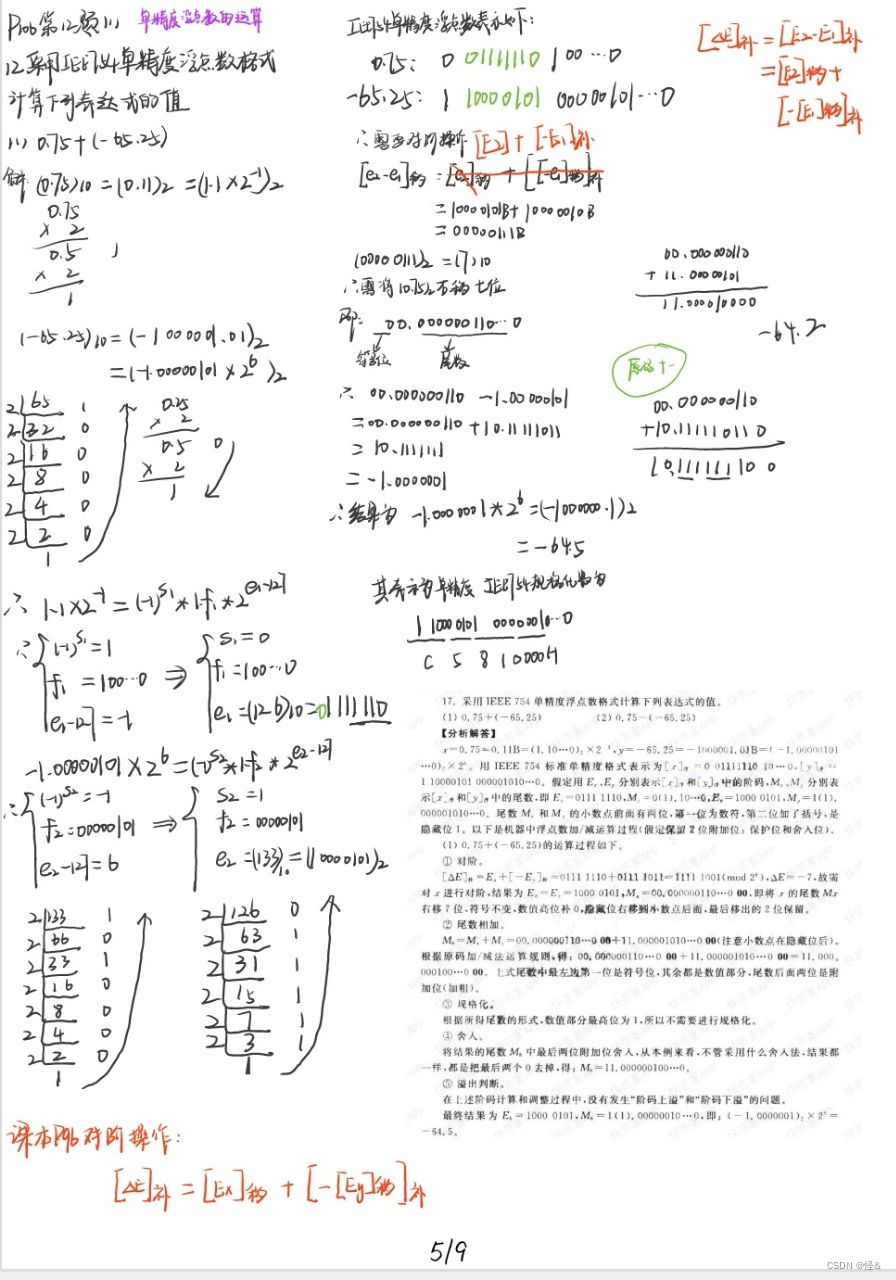 P106第12题(1) 单精度浮点数的运算
12.采用IEEE754单精度浮点数格式
计算下列表达式的值
(1) 0.75+(-65.25)
解: (0.75)10=(0.11)2=(1.1×2⁻¹)2
0.75
× 2
0.5 1
× 2
1
(-65.25)10=(-1000001.01)2
=(-1.00000101×2⁶)2
2 65 1
2 32 0
2 16 0
2 8 0
2 4 0
2 2 0
1
0.25
× 2
0.5 0
× 2
1
∴ 1.1×2⁻¹=(-1)^S1*1.f1*2^e1-127
∴ (-1)^S1=1
f1=100…0
e1-127=-1
⇒
S1=0
f1=100…0
e1=(126)10=01111110
-1.00000101×2⁶=(-1)^S2*1.f2*2^e2-127
∴ (-1)^S2=-1
f2=00000101
e2-127=6
⇒
S2=1
f2=00000101
e2=(133)10=(10000101)2
2 133 1
2 66 0
2 33 1
2 16 0
2 8 0
2 4 0
2 2 0
1
2 126 0
2 63 1
2 31 1
2 15 1
2 7 1
2 3 1
1
课本P96对阶操作:
[ΔE]补=[Ex]移+[-[Ey]移]补
IEEE754单精度浮点数表示如下:
0.75: 0 01111110 100…0
-65.25: 1 10000101 00000101…0
∴需要对阶操作 [E2]+[-E1]补
[e2-e1]移=[e2]移+[[-e1]移]补
=10000101B+10000010B
=00000111B
(00000111)2=(7)10
∴需将(0.75)2右移七位
即: 00.000000110…0
符号位 尾数
∴ 00.000000110 -1.00000101
=00.000000110+10.11111011
=10.1111111
=-1.0000001
∴结果为 -1.0000001*2⁶=(-1000000.1)2
=-64.5
其表示为单精度 IEEE754规格化数为
1 10000101 00000010…0
C 5 8 1 0000H
[ΔE]补=[E2-E1]补
=[E2]移+
[-[E1]移]补
00.000000110
+11.00000101
11.000010000
-64.2
原码+-
00.000000110
+10.111110110
10.111111100
17. 采用 IEEE 754 单精度浮点数格式计算下列表达式的值。
(1) 0.75+(-65.25) (2) 0.75-(-65.25)
【分析解答】
x=0.75=0.11B=(1.10…0)₂×2⁻¹,y=-65.25=-1000001.01B=(-1.00000101
…0)₂×2⁶。用 IEEE 754 标准单精度格式表示为[x]浮=0 01111110 10…0,[y]浮=
1 10000101 000001010…0。假定用 Eₓ、Eᵧ 分别表示[x]浮和[y]浮中的阶码,Mₓ、Mᵧ 分别表
示[x]浮和[y]浮中的尾数,即 Eₓ=0111 1110,Mₓ=0(1).10…0,Eᵧ=1000 0101,Mᵧ=1(1).
000001010…0。尾数 Mₓ 和 Mᵧ 的小数点前面有两位,第一位为数符,第二位加了括号,是
隐藏位 1。以下是机器中浮点数加/减运算过程(假定保留 2 位附加位:保护位和舍入位)。
(1) 0.75+(-65.25)的运算过程如下。
① 对阶。
[ΔE]补=Eₓ+[-Eᵧ]补=0111 1110+0111 1011=1111 1001(mod 2⁸),ΔE=-7,故需
对 x 进行对阶,结果为 Eₓ=Eᵧ=1000 0101,Mₓ=00.000000110…0 00,即将 x 的尾数 Mx
右移 7 位,符号不变,数值高位补 0,隐藏位右移到小数点后面,最后移出的 2 位保留。
② 尾数相加。
Mb=Mₓ+Mᵧ=00.000000110…0 00+11.000001010…0 00(注意小数点在隐藏位后)。
根据原码加/减法运算规则,得:00.000000110…0 00+11.000001010…0 00=11.000,
000100…0 00。上式尾数中最左边第一位是符号位,其余都是数值部分,尾数后面两位是附
加位(加粗)。
③ 规格化。
根据所得尾数的形式,数值部分最高位为 1,所以不需要进行规格化。
④ 舍入。
将结果的尾数 Mb 中最后两位附加位舍入,从本例来看,不管采用什么舍入法,结果都
一样,都是把最后两个 0 去掉,得:Mb=11.000000100…0。
⑤ 溢出判断。
在上述阶码计算和调整过程中,没有发生“阶码上溢”和“阶码下溢”的问题。
最终结果为 Eb=1000 0101,Mb=1(1).00000010…0,即:(-1.0000001)₂×2⁶=
-64.5。
5/9
CSDN @怪&